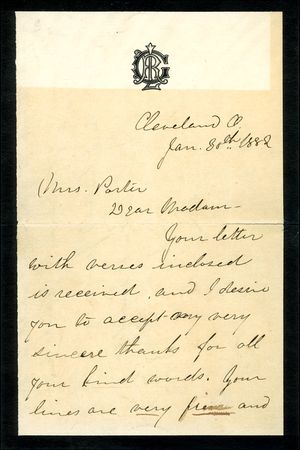 Cleveland O.
Jan. 30th 1882
Mrs. Porter
Dear Madam—
Your letter
with verses inclosed
is received, and I desire
you to accept my very
sincere thanks for all
your kind words. Your
lines are very fine and